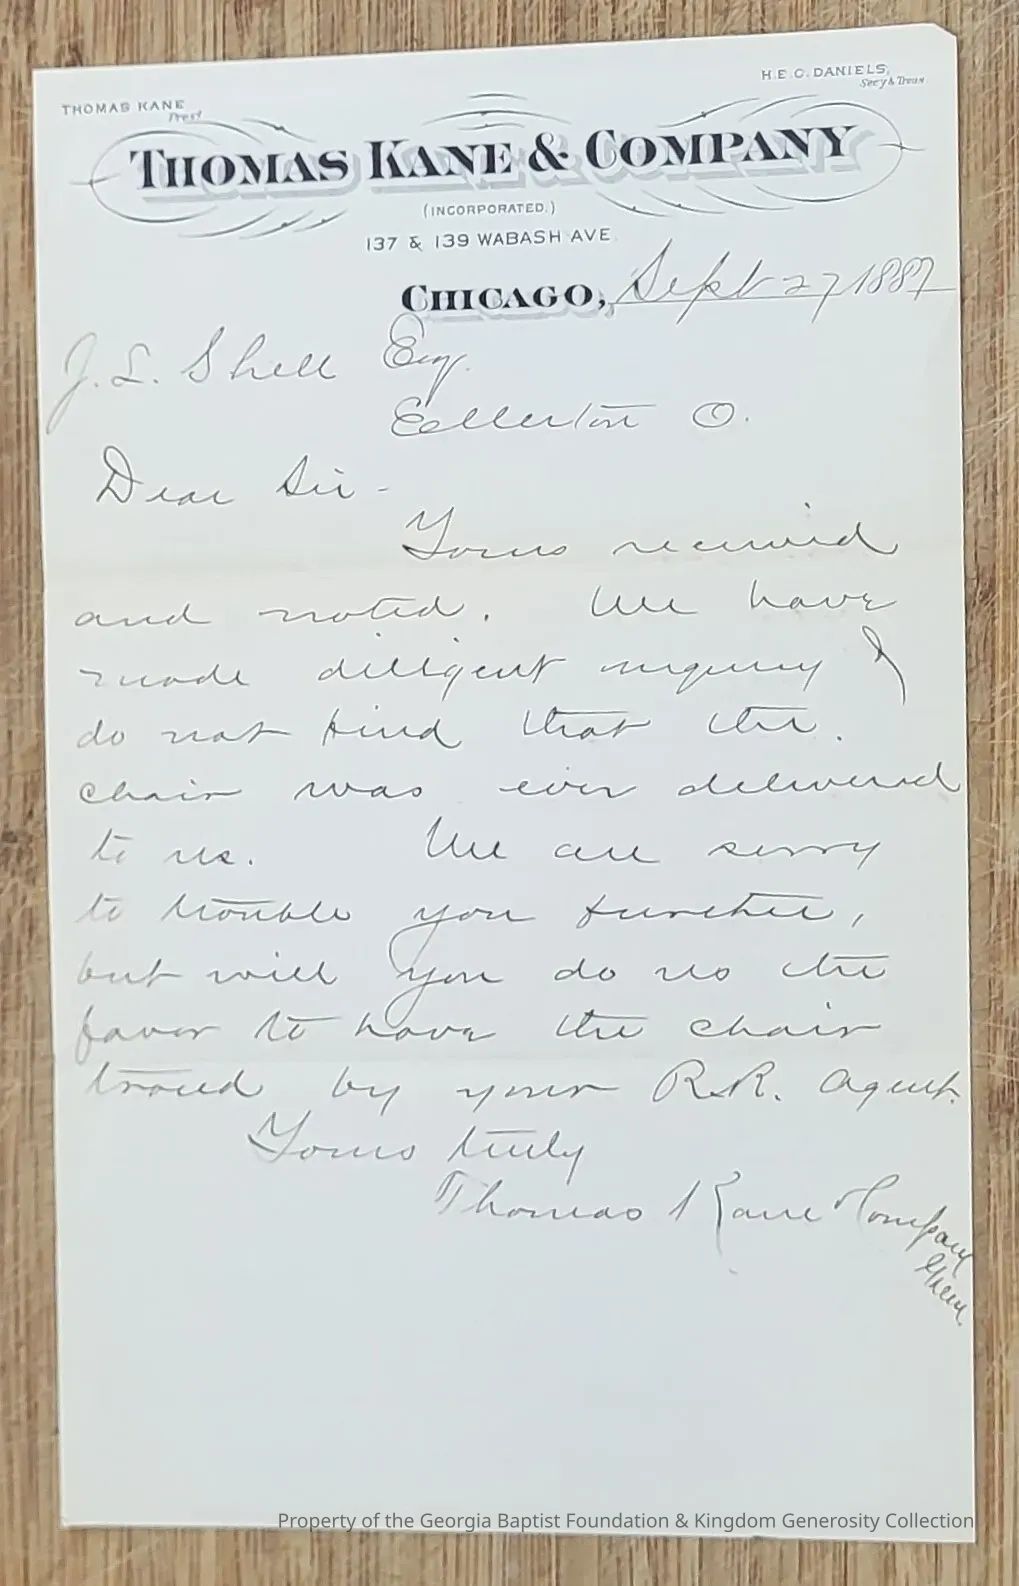 THOMAS KANE
Prest
H.E.C. DANIELS,
Secy & Treas
THOMAS KANE & COMPANY
(INCORPORATED.)
137 & 139 WABASH AVE.
CHICAGO, Sept 27 1887
J. L. Shell Esq.
Ellerton O.
Dear Sir -
Yours received
and noted. We have
made diligent inquiry &
do not find that the
chair was ever delivered
to us. We are sorry
to trouble you further,
but will you do us the
favor to have the chair
traced by your R.R. Agent.
Yours truly
Thomas Kane & Company
Property of the Georgia Baptist Foundation & Kingdom Generosity Collection